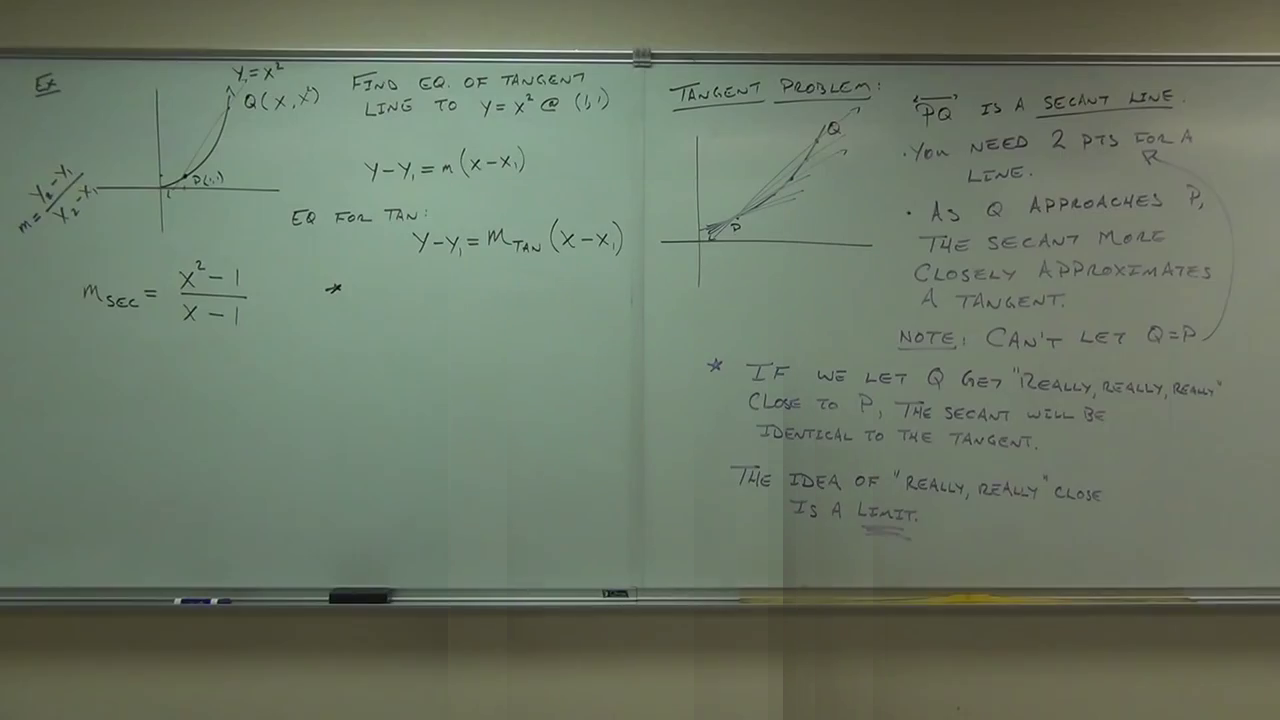 Ex
Y₁ = X²
Q(X, X²)
P(1,1)
1
m = Y₂ - Y₁ / X₂ - X₁
FIND EQ. OF TANGENT
LINE TO Y = X² @ (1,1)
Y - Y₁ = m(X - X₁)
EQ FOR TAN:
Y - Y₁ = m_TAN (X - X₁)
m_SEC = X² - 1 / X - 1
*
TANGENT PROBLEM:
Q
P
PQ IS A SECANT LINE.
· YOU NEED 2 PTS FOR A
LINE.
· AS Q APPROACHES P,
THE SECANT MORE
CLOSELY APPROXIMATES
A TANGENT.
NOTE: CAN'T LET Q=P
* IF WE LET Q GET "REALLY, REALLY, REALLY"
CLOSE TO P, THE SECANT WILL BE
IDENTICAL TO THE TANGENT.
THE IDEA OF "REALLY, REALLY" CLOSE
IS A LIMIT.